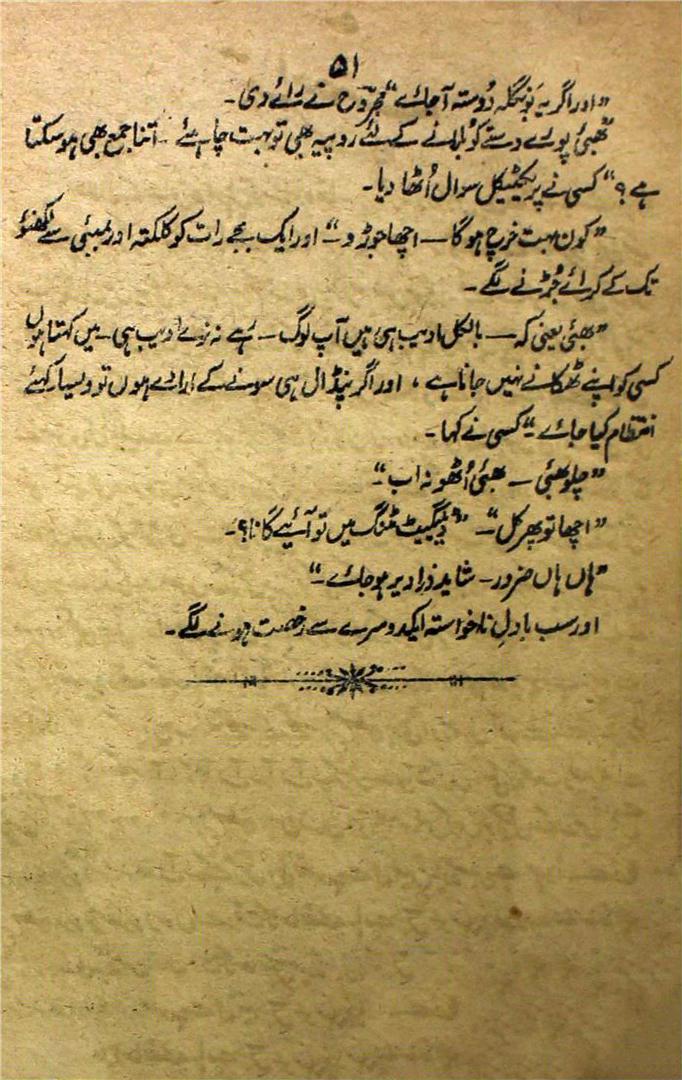 ۵۱
"اور اگر یہ نوبنگلہ دوستہ آجائے" مجروح نے رائے دی۔
"بھئی پورے دستے کو بلانے کے لئے روپیہ بھی تو بہت چاہیئے۔ اتنا جمع بھی ہو سکتا
ہے؟" کسی نے پریکٹیکل سوال اُٹھا دیا۔
"کون بہت خرچ ہوگا — اچھا جوڑو۔" اور ایک بجے رات کو کلکتہ اور بمبئی سے لکھنؤ
تک کے کرائے جُڑنے لگے۔
"بھئی یعنی کہ — بالکل ادیب ہی ہیں آپ لوگ — رہے نہ نرے ادیب ہی۔ میں کہتا ہوں
کسی کو اپنے ٹھکانے نہیں جانا ہے، اور اگر پنڈال ہی سونے کے ارادے ہوں تو ویسا کہئے
انتظام کیا جائے۔" کسی نے کہا۔
"چلو بھئی — بھئی اُٹھو نہ اب۔"
"اچھا تو پھر کل۔" "ڈیلیگیٹ مٹنگ میں تو آئیے گا نا؟"۔
"ہاں ہاں ضرور۔ شاید ذرا دیر ہو جائے۔"
اور سب بادلِ ناخواستہ ایکدوسرے سے رخصت ہونے لگے۔